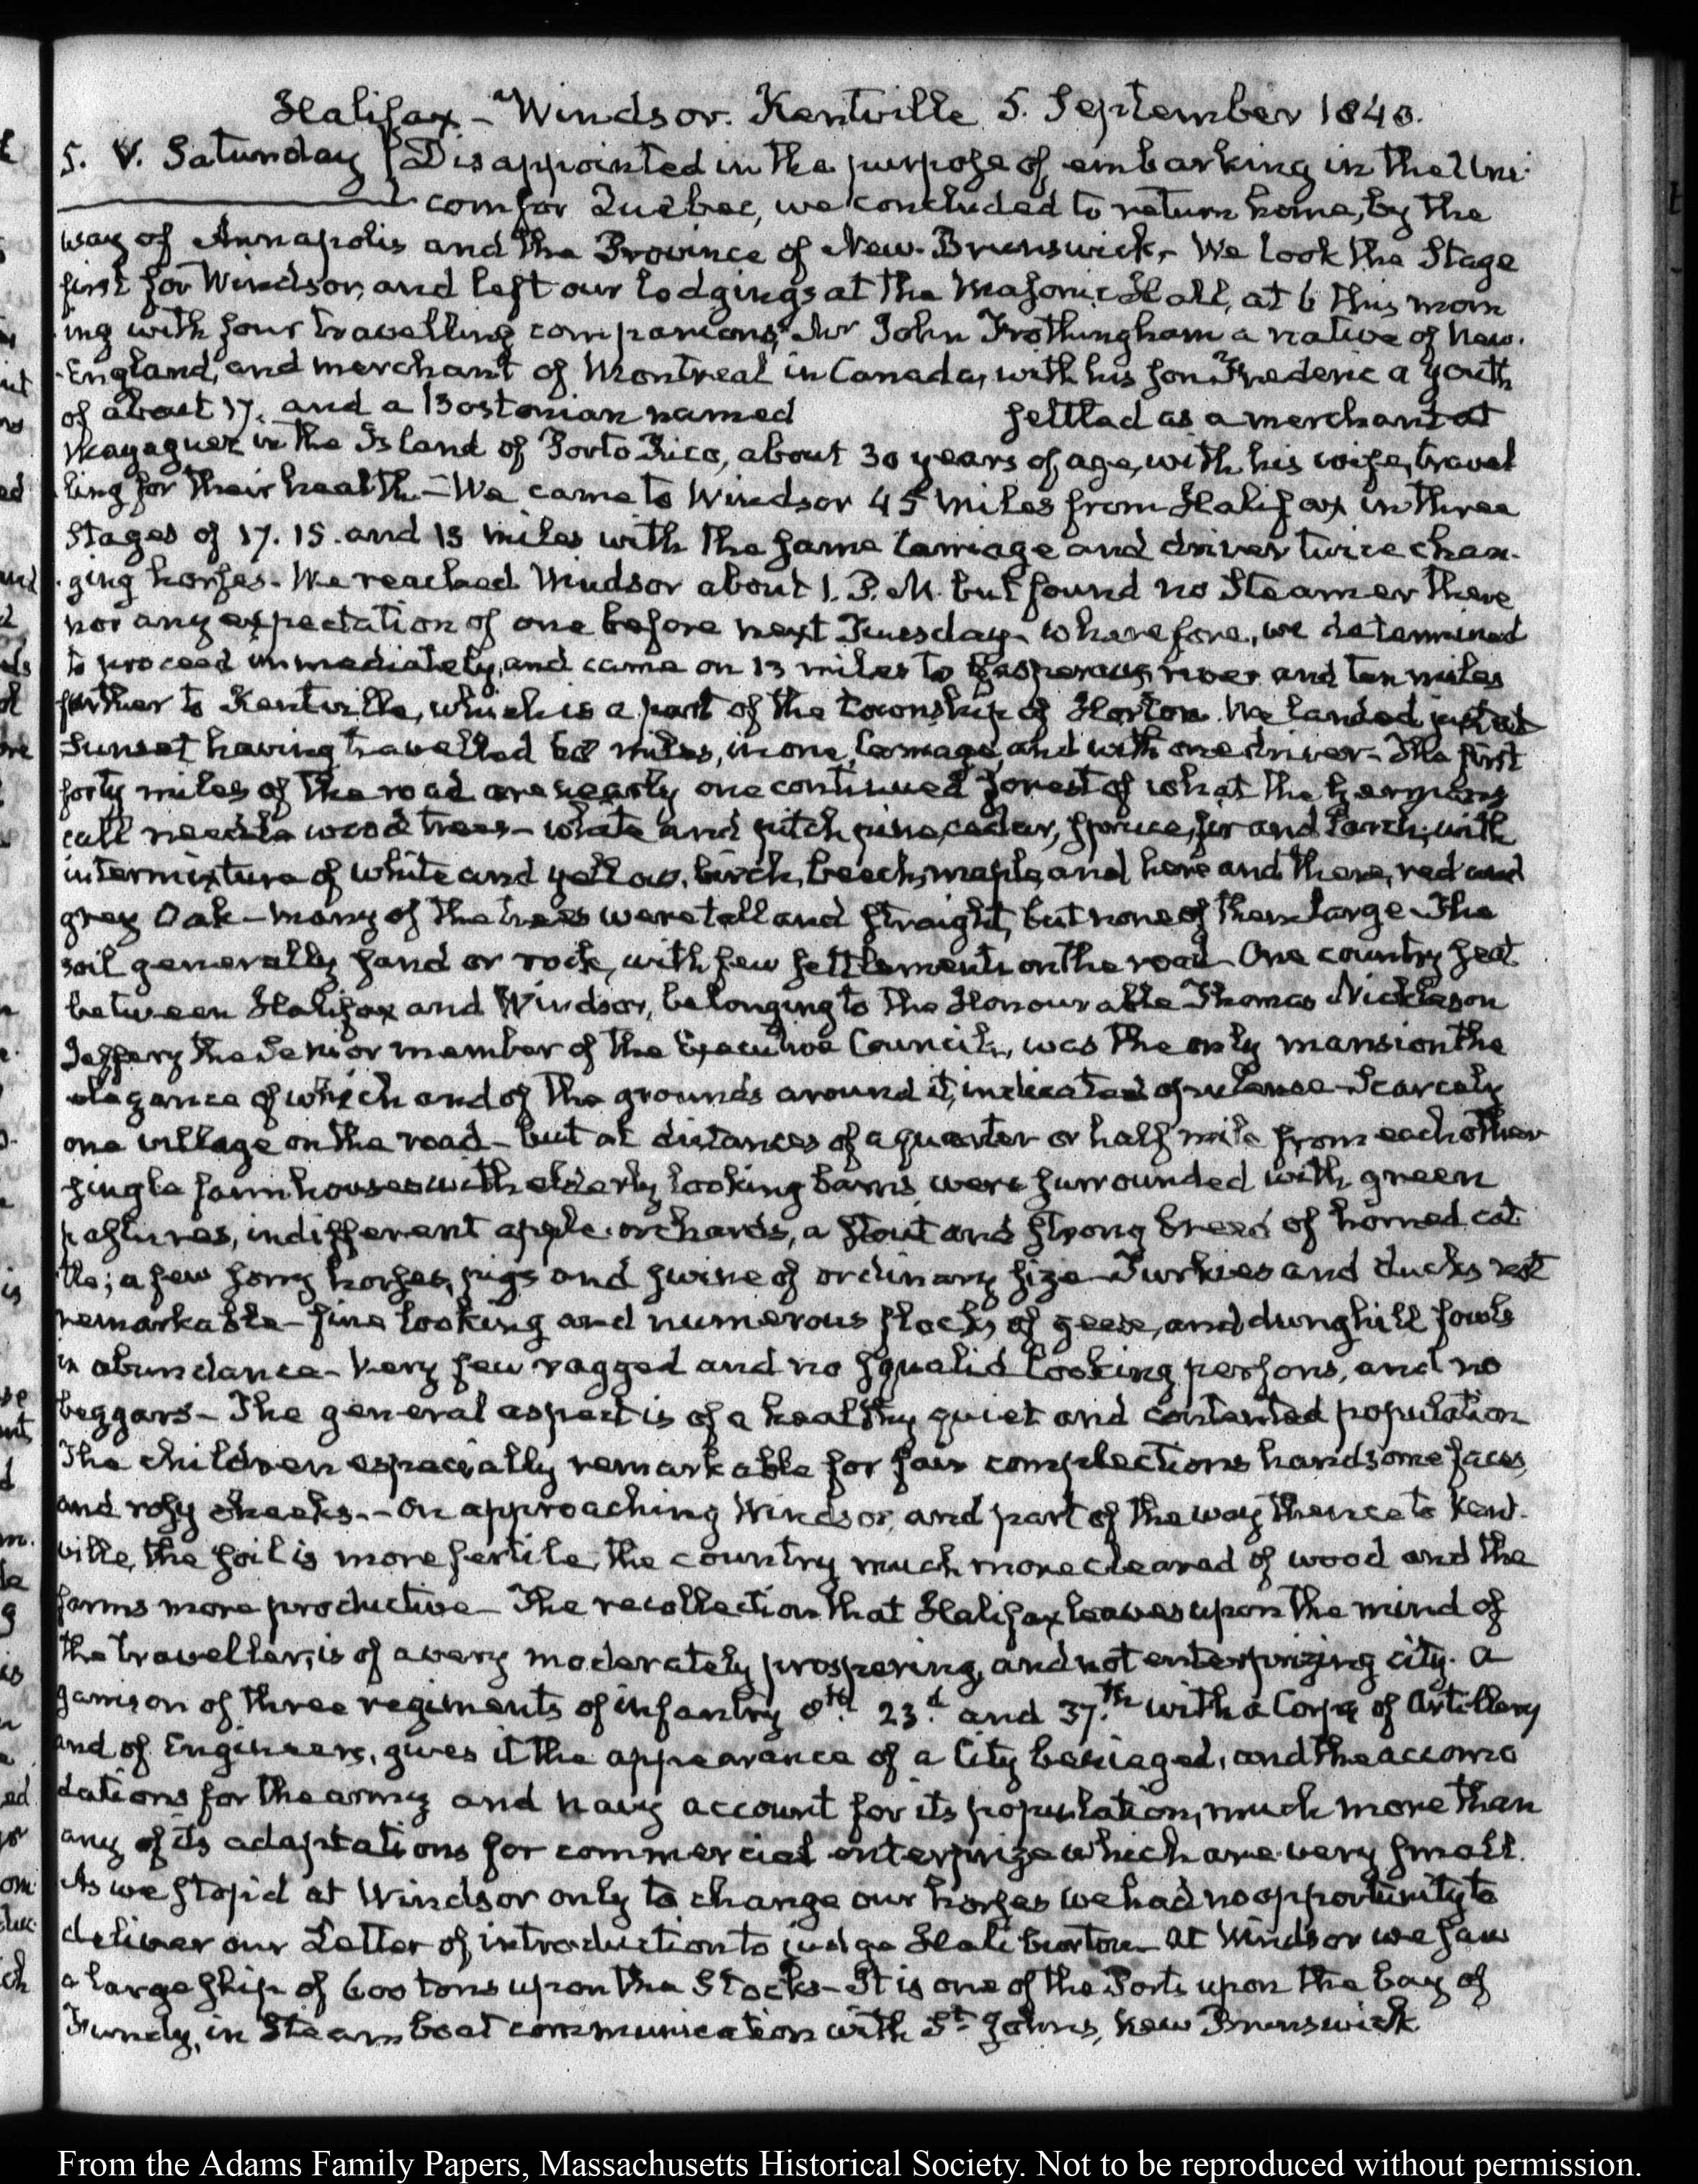 Halifax – Windsor. Kentville 5. September 1840.
5. V. Saturday Disappointed in the purpose of embarking in the Uni
corn for Quebec, we concluded to return home, by the
way of Annapolis and the Province of New-Brunswick,– We took the Stage
first for Windsor, and left our lodgings at the Masonic Hall, at 6 this morn
ing with four travelling companions, Mr John Frothingham a native of New-
England, and merchant of Montreal in Canada, with his son Frederic a youth
of about 17. and a Bostonian named settled as a merchant at
Mayaguez in the Island of Porto Rico, about 30 years of age, with his wife, travel
ling for their health – We came to Windsor 45 miles from Halifax in three
Stages of 17. 15. and 13 miles with the same Carriage and driver twice chan-
ging horses. We reached Windsor about 1. P.M. but found no Steamer there
nor any expectation of one before next Tuesday – wherefore, we determined
to proceed immediately, and came on 13 miles to Gasperaux river and ten miles
further to Kentville, which is a part of the township of Horton. We landed just at
Sunset having travelled 68 miles, in one Carriage, and with one driver – The first
forty miles of the road are nearly one continued forest of what the Germans
call needle wood trees – white and pitch pine, cedar, spruce, fir and larch; with
intermixture of white and yellow, birch, beech, maple, and here and there, red and
grey Oak – many of the trees were tall and straight, but none of them large – The
soil generally sand or rock, with few settlements on the road – One country seat
between Halifax and Windsor, belonging to the Honourable Thomas Nickleson
Jeffery the Senior member of the Executive Council, was the only mansion the
elegance of which and of the grounds around it, indicated opulence – Scarcely
one village on the road – but at distances of a quarter or half mile from each other
single farm houses with elderly looking barns were surrounded with green
pastures, indifferent apple-orchards, a stout and strong breed of horned cat
tle; a few sorry horses, pigs and swine of ordinary size – Turkies and ducks not
remarkable – fine looking and numerous flocks of geese, and dunghill fowls
in abundance – Very few ragged and no squalid looking persons, and no
beggars – The general aspect is of a healthy quiet and contented population
The children especially remarkable for fair complections handsome faces,
and rosy cheeks. – On approaching Windsor, and part of the way thence to Kent-
ville, the soil is more fertile, the country much more cleared of wood and the
farms more productive – The recollection that Halifax leaves upon the mind of
the traveller, is of a very moderately prospering, and not enterprizing city. A
garrison of three regiments of infantry 8th 23.d and 37.th with a Corps of Artillery
and of Engineers, gives it the appearance of a City besieged, and the accomo
dations for the army and navy account for its population, much more than
any of its adaptations for commercial enterprize which are very small.
As we stop'd at Windsor only to change our horses we had no opportunity to
deliver our Letter of introduction to judge Haliburton – At Windsor we saw
a large ship of 600 tons upon the Stocks – It is one of the Ports upon the bay of
Fundy, in Steam boat communication with St Johns, New Brunswick
From the Adams Family Papers, Massachusetts Historical Society. Not to be reproduced without permission.